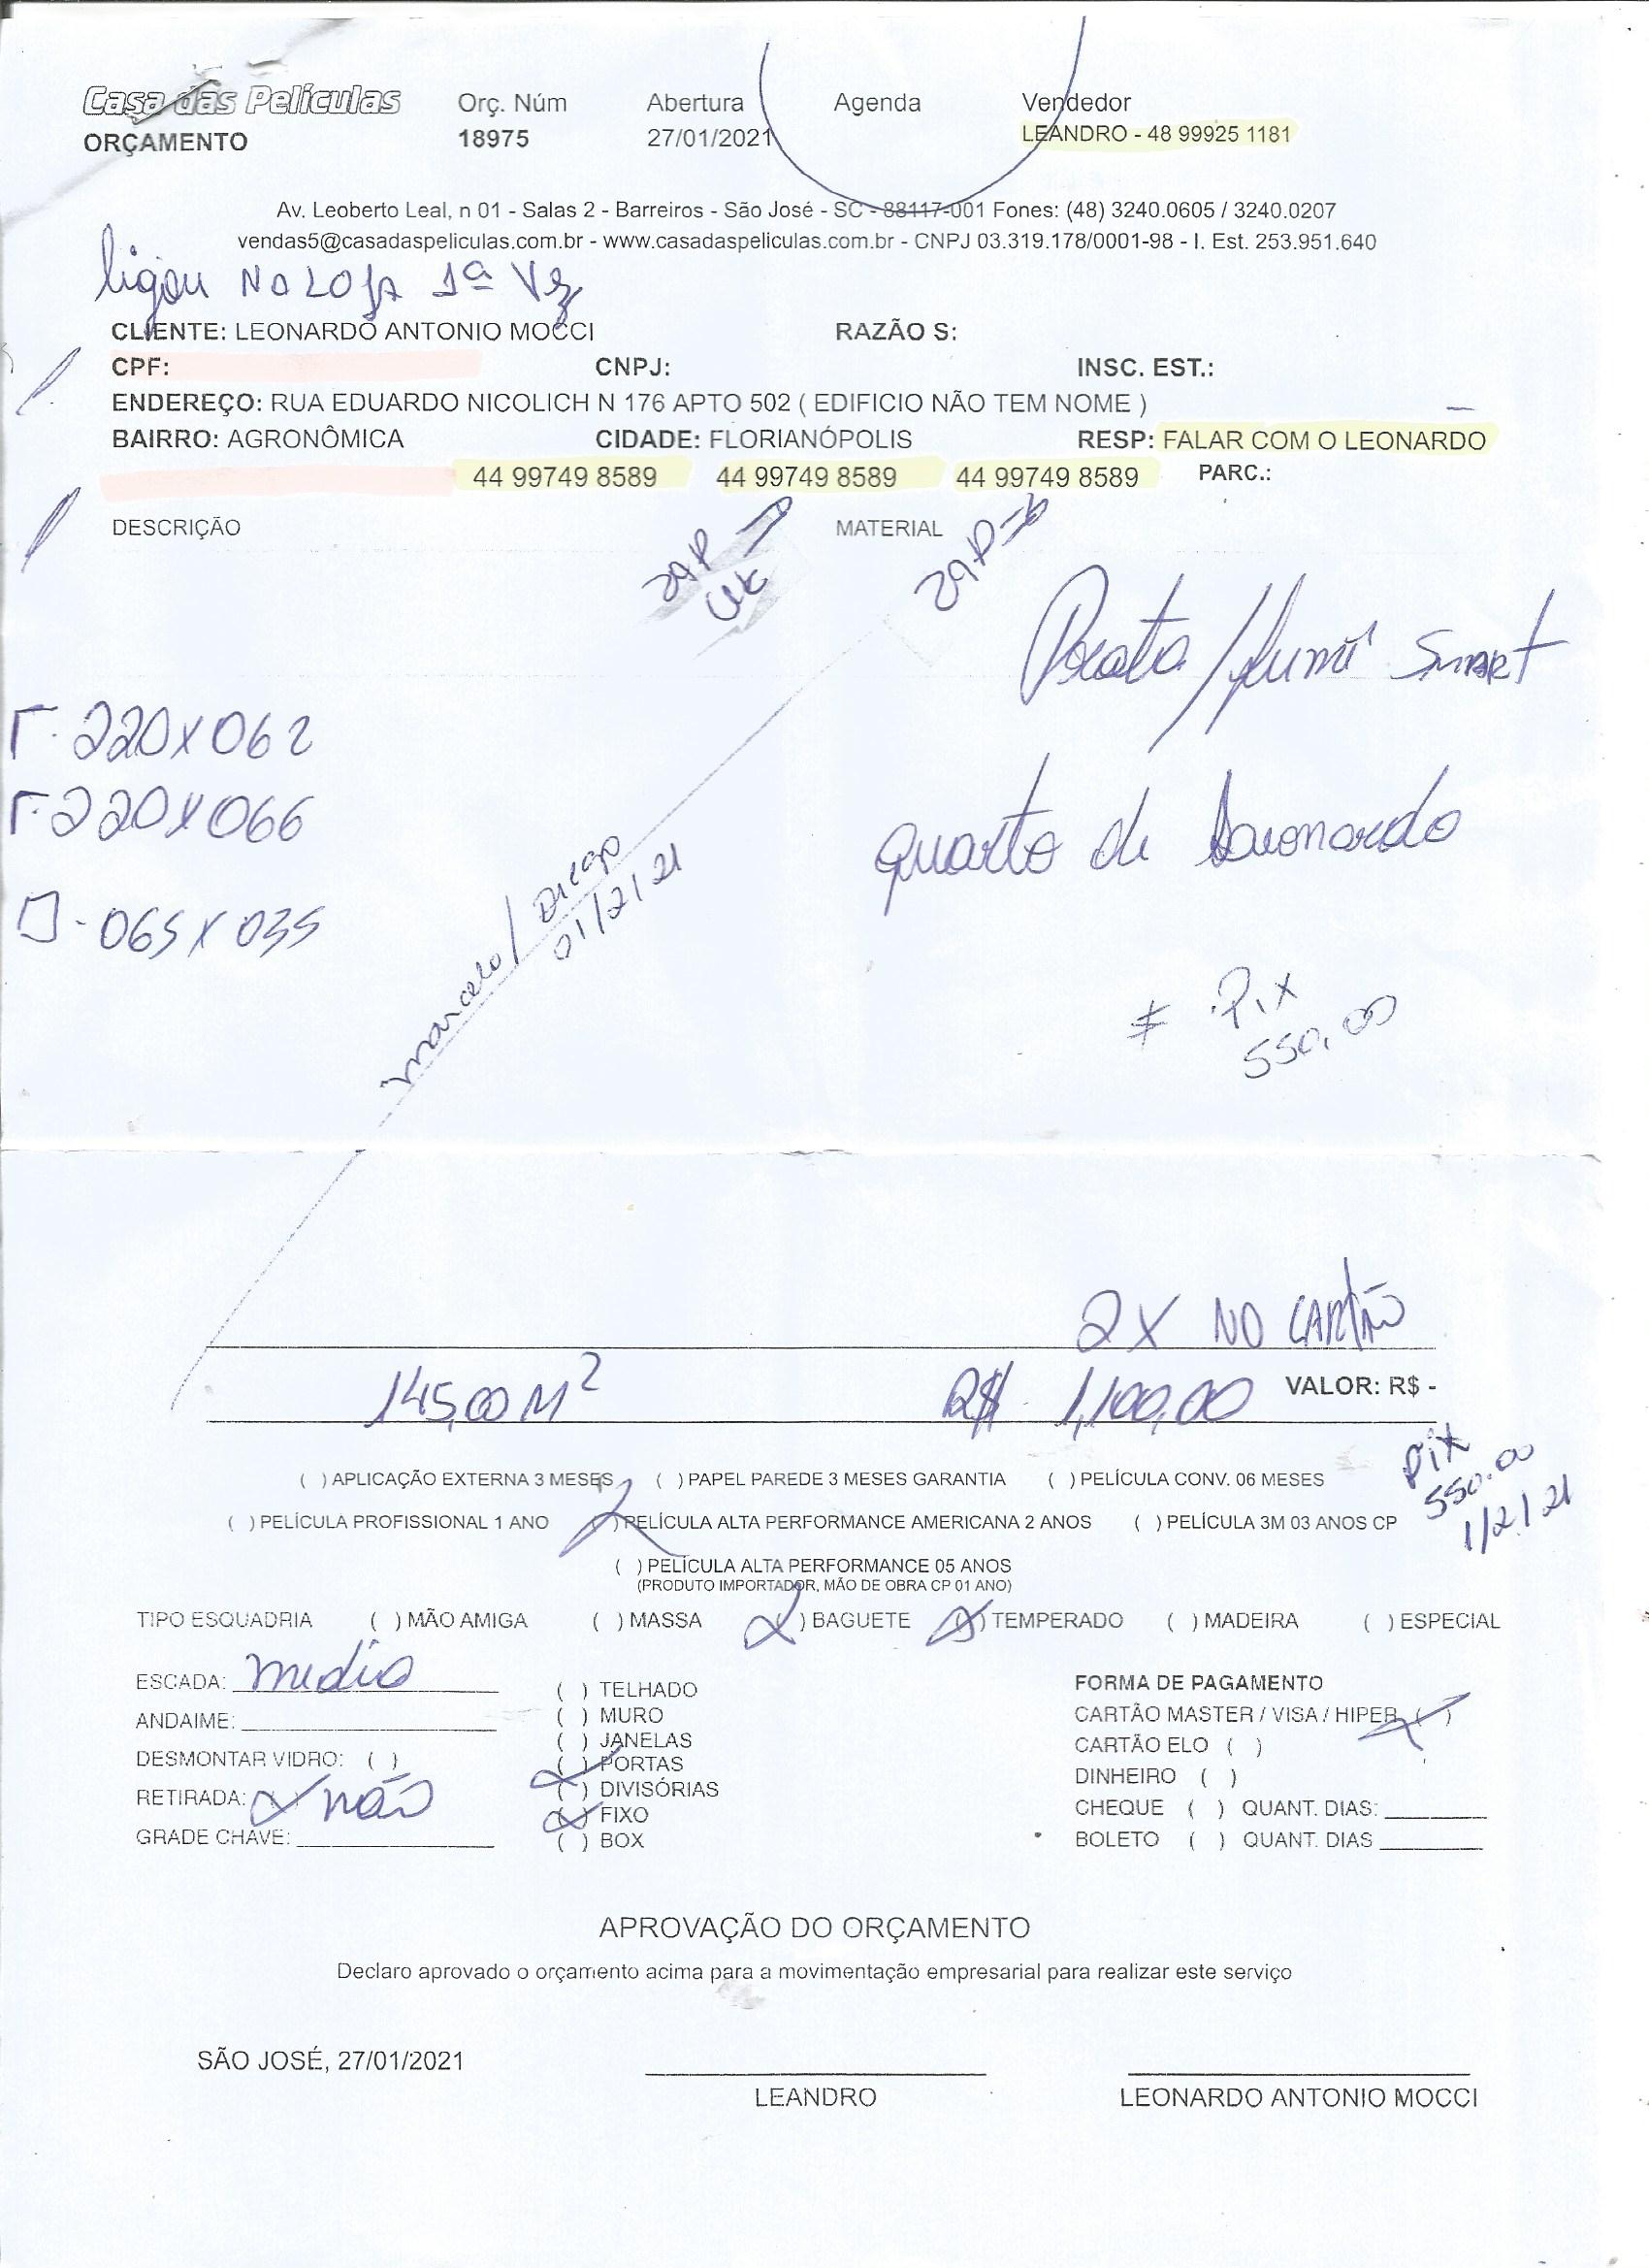 Casa das Películas Orç. Núm Abertura Agenda Vendedor
ORÇAMENTO 18975 27/01/2021 LEANDRO - 48 99925 1181
Av. Leoberto Leal, n 01 - Salas 2 - Barreiros - São José - SC - 88117-001 Fones: (48) 3240.0605 / 3240.0207
vendas5@casadaspeliculas.com.br - www.casadaspeliculas.com.br - CNPJ 03.319.178/0001-98 - I. Est. 253.951.640
ligou Na LOJA 1ª Vez
CLIENTE: LEONARDO ANTONIO MOCCI RAZÃO S:
CPF: CNPJ: INSC. EST.:
ENDEREÇO: RUA EDUARDO NICOLICH N 176 APTO 502 ( EDIFICIO NÃO TEM NOME )
BAIRRO: AGRONÔMICA CIDADE: FLORIANÓPOLIS RESP: FALAR COM O LEONARDO
44 99749 8589 44 99749 8589 44 99749 8589 PARC.:
DESCRIÇÃO MATERIAL
Prata / fumê Smart
220X062
220X066
quarto de Leonardo
065X035
Marcelo / Diego
01/2/21
Pix
550,00
2X NO CARTÃO
145,00 M² R$ 1,100,00 VALOR: R$ -
Pix
550.00
1/2/21
( ) APLICAÇÃO EXTERNA 3 MESES ( ) PAPEL PAREDE 3 MESES GARANTIA ( ) PELÍCULA CONV. 06 MESES
( ) PELÍCULA PROFISSIONAL 1 ANO (X) PELÍCULA ALTA PERFORMANCE AMERICANA 2 ANOS ( ) PELÍCULA 3M 03 ANOS CP
( ) PELÍCULA ALTA PERFORMANCE 05 ANOS
(PRODUTO IMPORTADOR, MÃO DE OBRA CP 01 ANO)
TIPO ESQUADRIA ( ) MÃO AMIGA ( ) MASSA (X) BAGUETE (X) TEMPERADO ( ) MADEIRA ( ) ESPECIAL
ESCADA: media
ANDAIME:
DESMONTAR VIDRO: ( )
RETIRADA: (X) não
GRADE CHAVE:
( ) TELHADO
( ) MURO
( ) JANELAS
(X) PORTAS
( ) DIVISÓRIAS
(X) FIXO
( ) BOX
FORMA DE PAGAMENTO
CARTÃO MASTER / VISA / HIPER (X)
CARTÃO ELO ( )
DINHEIRO ( )
CHEQUE ( ) QUANT. DIAS:
BOLETO ( ) QUANT. DIAS
APROVAÇÃO DO ORÇAMENTO
Declaro aprovado o orçamento acima para a movimentação empresarial para realizar este serviço
SÃO JOSÉ, 27/01/2021
LEANDRO LEONARDO ANTONIO MOCCI